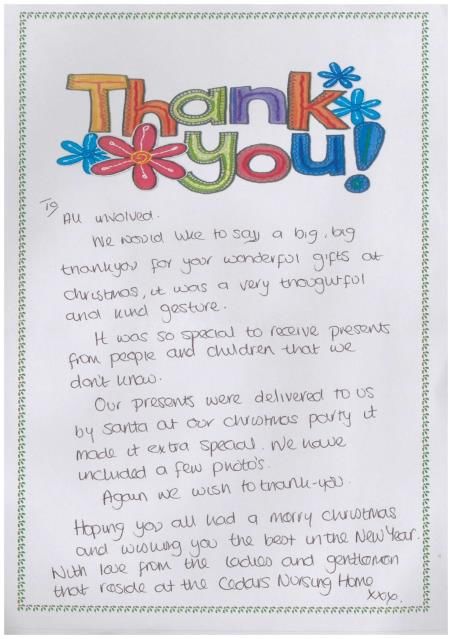 Thank
you!
To
All involved.
We would like to say a big, big
thankyou for your wonderful gifts at
christmas, it was a very thoughtful
and kind gesture.
It was so special to receive presents
from people and children that we
don't know.
Our presents were delivered to us
by santa at our christmas party it
made it extra special. We have
included a few photo's.
Again we wish to thank-you.
Hoping you all had a merry christmas
and wishing you the best in the New Year.
With love from the ladies and gentlemen
that reside at the Cedars Nursing Home
xxxx.